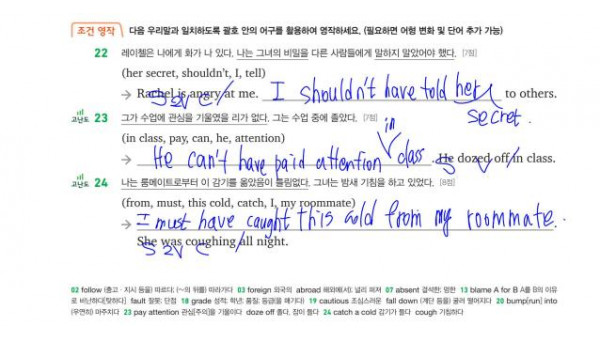 조건 영작 다음 우리말과 일치하도록 괄호 안의 어구를 활용하여 영작하세요. (필요하면 어형 변화 및 단어 추가 가능)
22 레이첼은 나에게 화가 나 있다. 나는 그녀의 비밀을 다른 사람들에게 말하지 말았어야 했다. [7점]
(her secret, shouldn't, I, tell)
→ Rachel is angry at me. I shouldn't have told her secret to others.
S V C
고난도 23 그가 수업에 관심을 기울였을 리가 없다. 그는 수업 중에 졸았다. [7점]
(in class, pay, can, he, attention)
→ He can't have paid attention in class. He dozed off in class.
S V
고난도 24 나는 룸메이트로부터 이 감기를 옮았음이 틀림없다. 그녀는 밤새 기침을 하고 있었다. [8점]
(from, must, this cold, catch, I, my roommate)
→ I must have caught this cold from my roommate.
She was coughing all night.
S V
02 follow (충고·지시 등을) 따르다; (~의 뒤를) 따라가다 03 foreign 외국의 abroad 해외에(서); 널리 퍼져 07 absent 결석한; 멍한 13 blame A for B A를 B의 이유
로 비난하다[탓하다] fault 잘못; 단점 18 grade 성적; 학년; 품질; 등급(을 매기다) 19 cautious 조심스러운 fall down (계단 등을) 굴러 떨어지다 20 bump[run] into
(우연히) 마주치다 23 pay attention 관심[주의]을 기울이다 doze off 졸다, 잠이 들다 24 catch a cold 감기가 들다 cough 기침하다